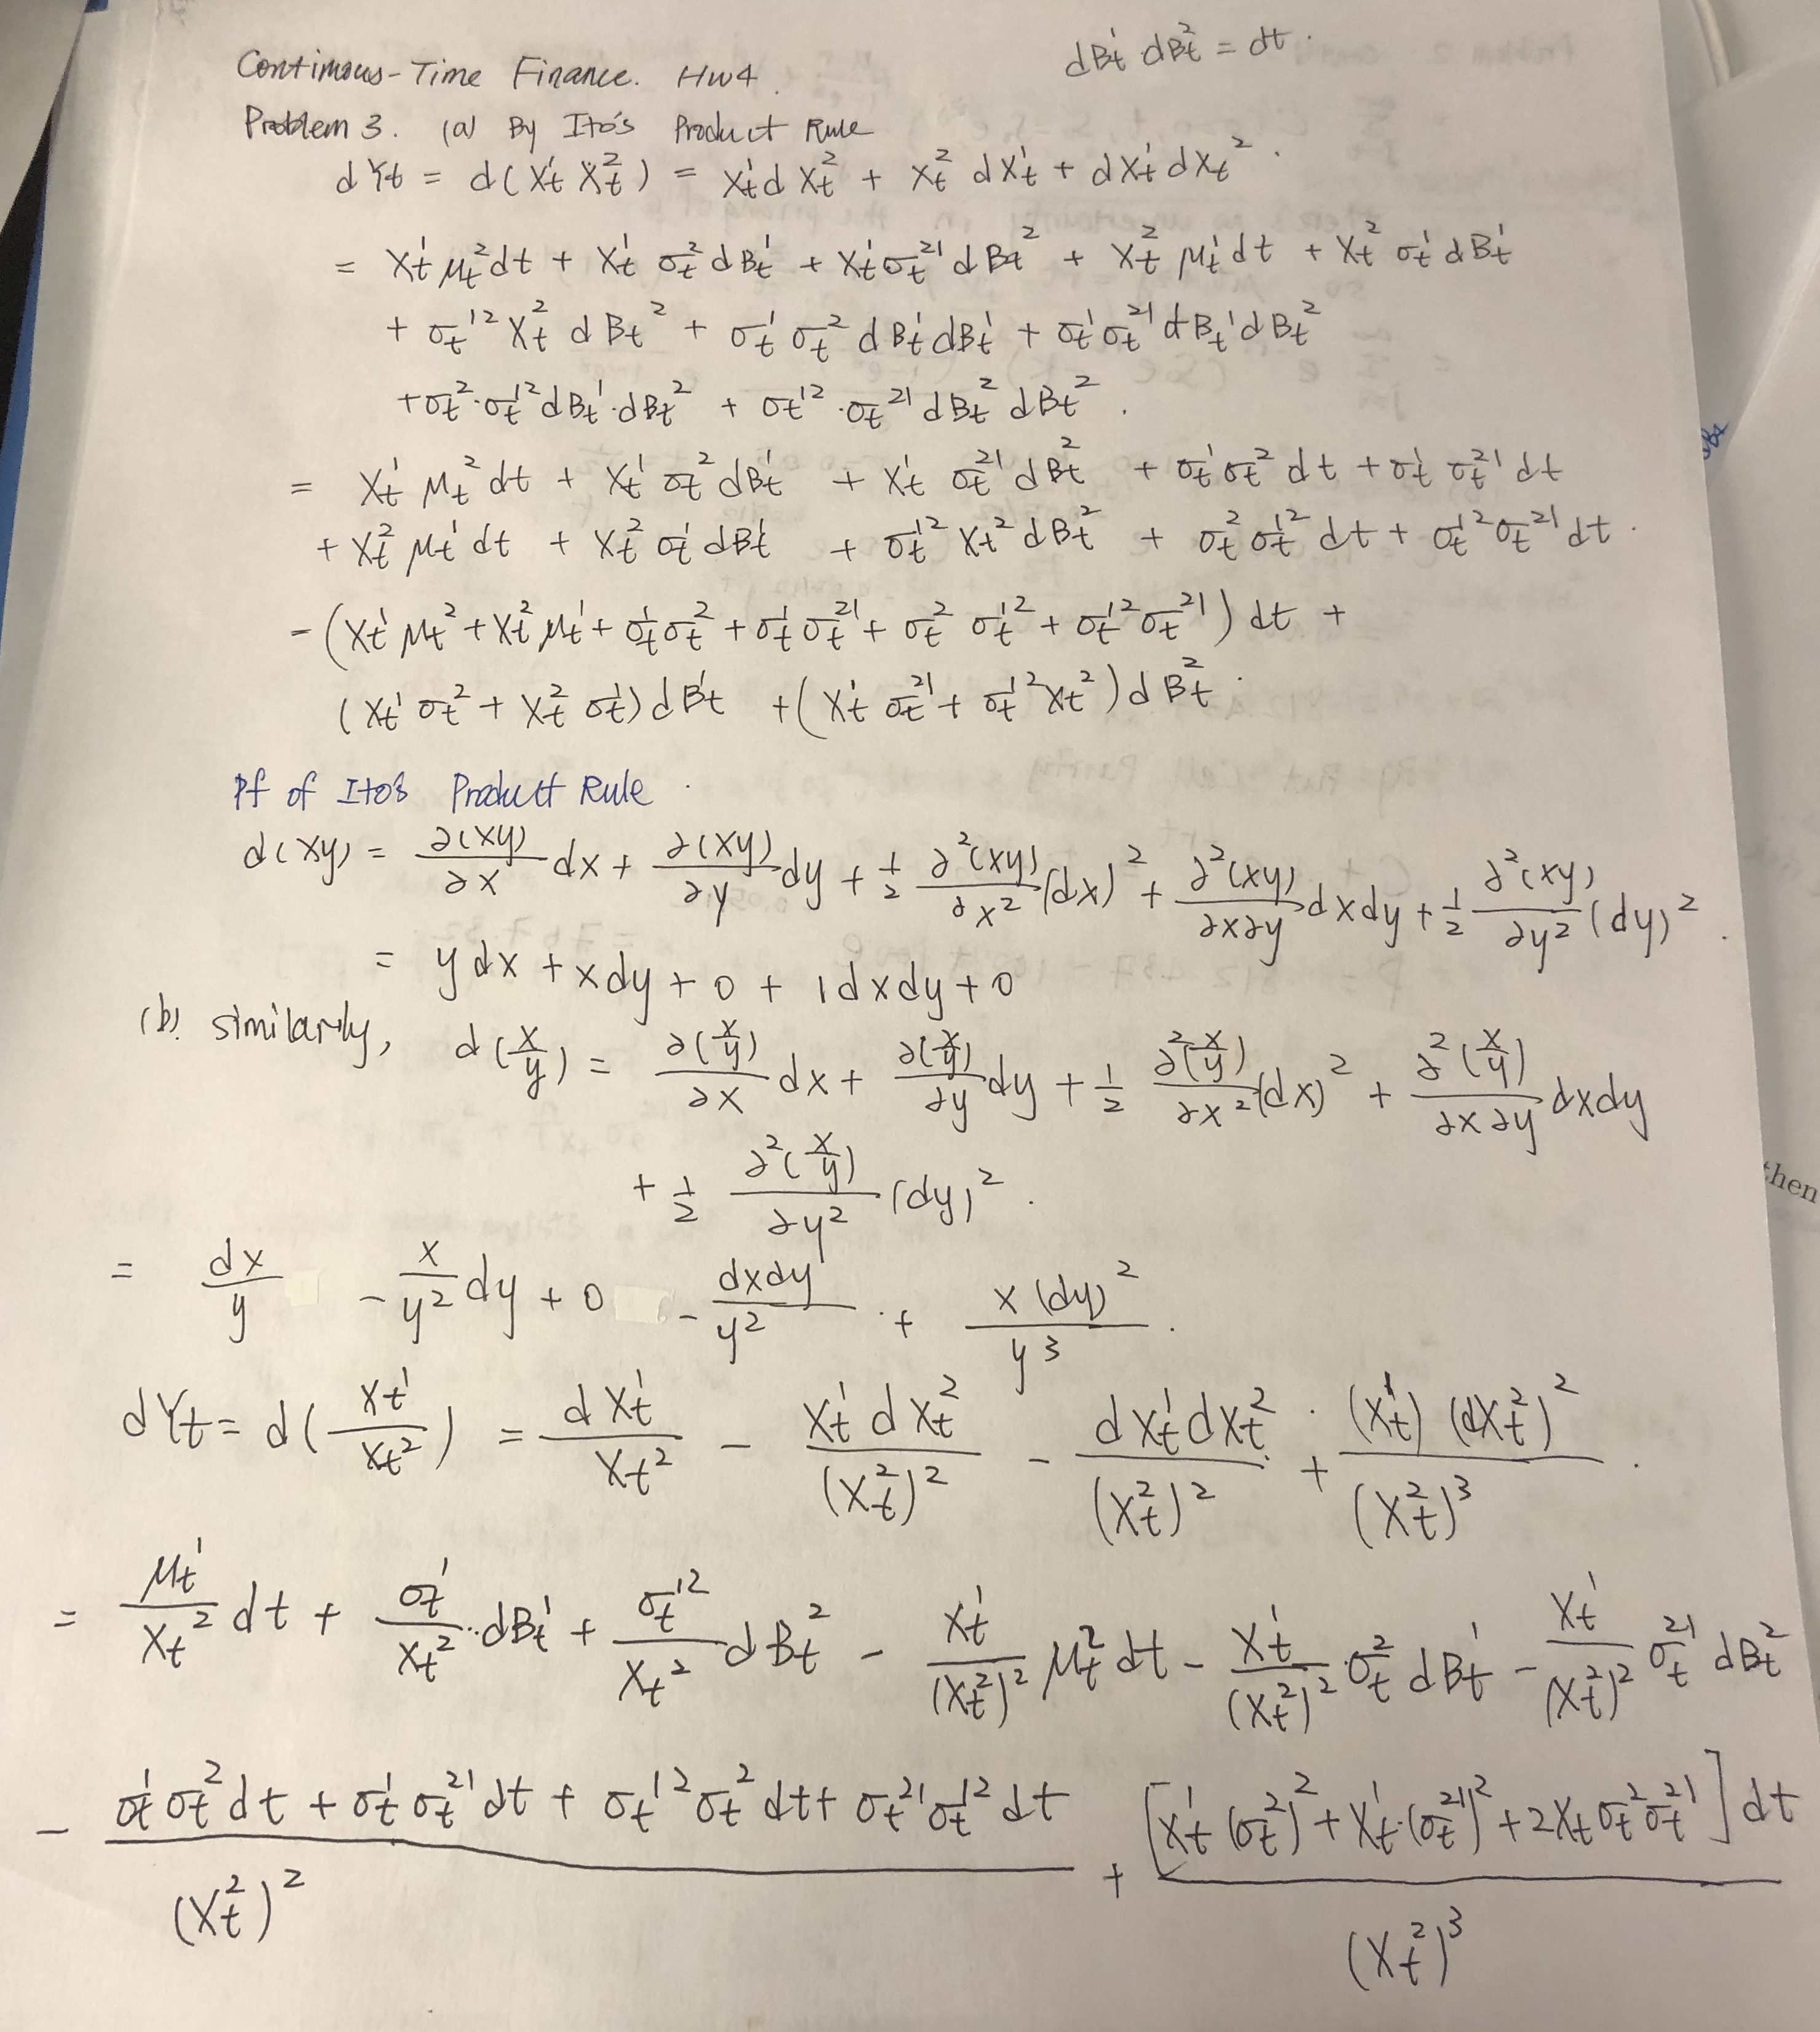 dB_t^1 dB_t^2 = dt.
Continuous-Time Finance. HW4.
Problem 3. (a) By Ito's Product Rule
dY_t = d(X_t^1 X_t^2) = X_t^1 dX_t^2 + X_t^2 dX_t^1 + dX_t^1 dX_t^2.
= X_t^1 μ_t^2 dt + X_t^1 σ_t^2 dB_t^1 + X_t^1 σ_t^{21} dB_t^2 + X_t^2 μ_t^1 dt + X_t^2 σ_t^1 dB_t^1
+ σ_t^{12} X_t^2 dB_t^2 + σ_t^1 σ_t^2 dB_t^1 dB_t^1 + σ_t^1 σ_t^{21} dB_t^1 dB_t^2
+ σ_t^2 · σ_t^{12} dB_t^1 · dB_t^2 + σ_t^{12} · σ_t^{21} dB_t^2 dB_t^2.
= X_t^1 μ_t^2 dt + X_t^1 σ_t^2 dB_t^1 + X_t^1 σ_t^{21} dB_t^2 + σ_t^1 σ_t^2 dt + σ_t^1 σ_t^{21} dt
+ X_t^2 μ_t^1 dt + X_t^2 σ_t^1 dB_t^1 + σ_t^{12} X_t^2 dB_t^2 + σ_t^2 σ_t^{12} dt + σ_t^{12} σ_t^{21} dt.
- (X_t^1 μ_t^2 + X_t^2 μ_t^1 + σ_t^1 σ_t^2 + σ_t^1 σ_t^{21} + σ_t^2 σ_t^{12} + σ_t^{12} σ_t^{21}) dt +
(X_t^1 σ_t^2 + X_t^2 σ_t^1) dB_t^1 + (X_t^1 σ_t^{21} + σ_t^{12} X_t^2) dB_t^2.
Pf of Ito's Product Rule.
d(xy) = ∂(xy)/∂x dx + ∂(xy)/∂y dy + 1/2 ∂²(xy)/∂x² (dx)² + ∂²(xy)/∂x∂y dxdy + 1/2 ∂²(xy)/∂y² (dy)².
= ydx + xdy + 0 + 1dxdy + 0
(b). similarly, d(x/y) = ∂(x/y)/∂x dx + ∂(x/y)/∂y dy + 1/2 ∂²(x/y)/∂x² (dx)² + ∂²(x/y)/∂x∂y dxdy
+ 1/2 ∂²(x/y)/∂y² (dy)².
= dx/y - x/y² dy + 0 - dxdy/y² + x(dy)²/y³.
dY_t = d(X_t^1/X_t^2) = dX_t^1/X_t^2 - X_t^1 dX_t^2/(X_t^2)² - dX_t^1 dX_t^2/(X_t^2)² + (X_t^1)(dX_t^2)²/(X_t^2)³.
= μ_t^1/X_t^2 dt + σ_t^1/X_t^2 · dB_t^1 + σ_t^{12}/X_t^2 dB_t^2 - X_t^1/(X_t^2)² μ_t^2 dt - X_t^1/(X_t^2)² · σ_t^2 dB_t^1 - X_t^1/(X_t^2)² σ_t^{21} dB_t^2
- (σ_t^1 σ_t^2 dt + σ_t^1 σ_t^{21} dt + σ_t^{12} σ_t^2 dt + σ_t^{21} σ_t^{12} dt)/(X_t^2)² + [X_t^1 (σ_t^2)² + X_t^1 · (σ_t^{21})² + 2X_t σ_t^2 σ_t^{21}] dt/(X_t^2)³
then